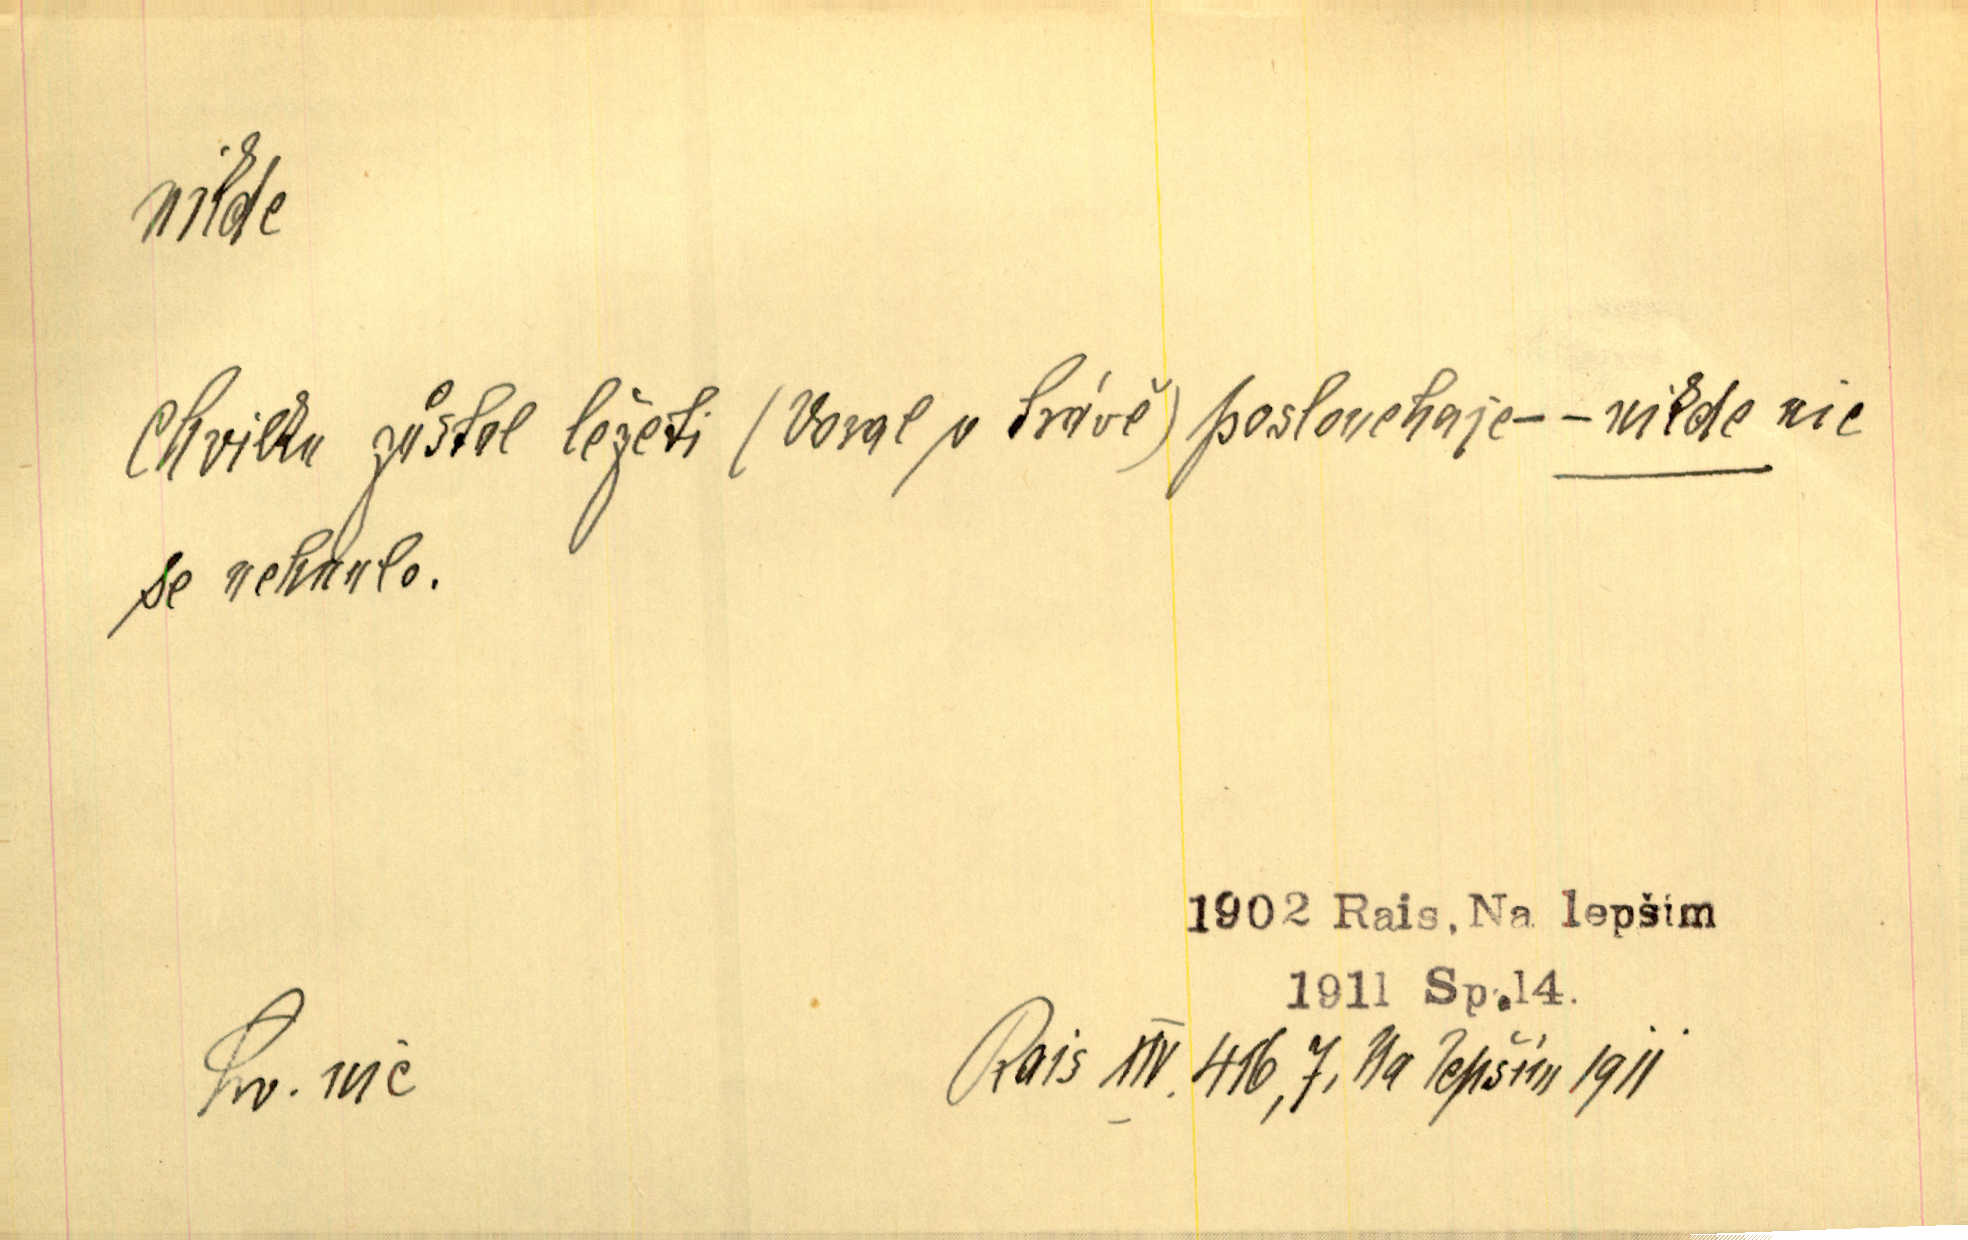 nikde
Chvilku zůstal ležeti (Voral v trávě) poslouchaje - - nikde nic
se nehnulo.
1902 Rais, Na lepším
1911 Sp.14.
Rais XIV. 416,7, Na lepším 1911
nic